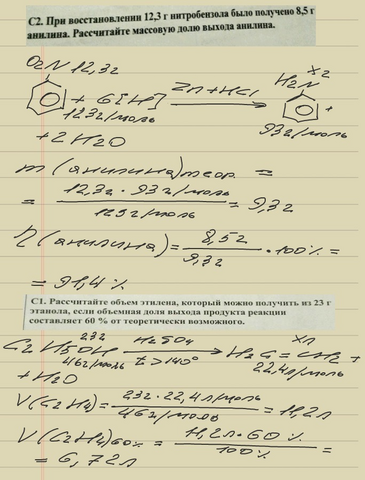 С2. При восстановлении 12,3 г нитробензола было получено 8,5 г
анилина. Рассчитайте массовую долю выхода анилина.
O2N 12,3г H2N x г
+ 6[H] Zn+HCl → +
123г/моль 93г/моль
+ 2H2O
m (анилина)теор. =
= 12,3г · 93г/моль / 123г/моль = 9,3г
η (анилина) = 8,5г / 9,3г · 100% =
= 91,4 %
С1. Рассчитайте объем этилена, который можно получить из 23 г
этанола, если объемная доля выхода продукта реакции
составляет 60 % от теоретически возможного.
23г H2SO4 xл
C2H5OH → H2C=CH2 +
46г/моль t>140° 22,4л/моль
+ H2O
V(C2H4) = 23г · 22,4л/моль / 46г/моль = 11,2л
V(C2H4)60% = 11,2л · 60 % / 100% =
= 6,72л